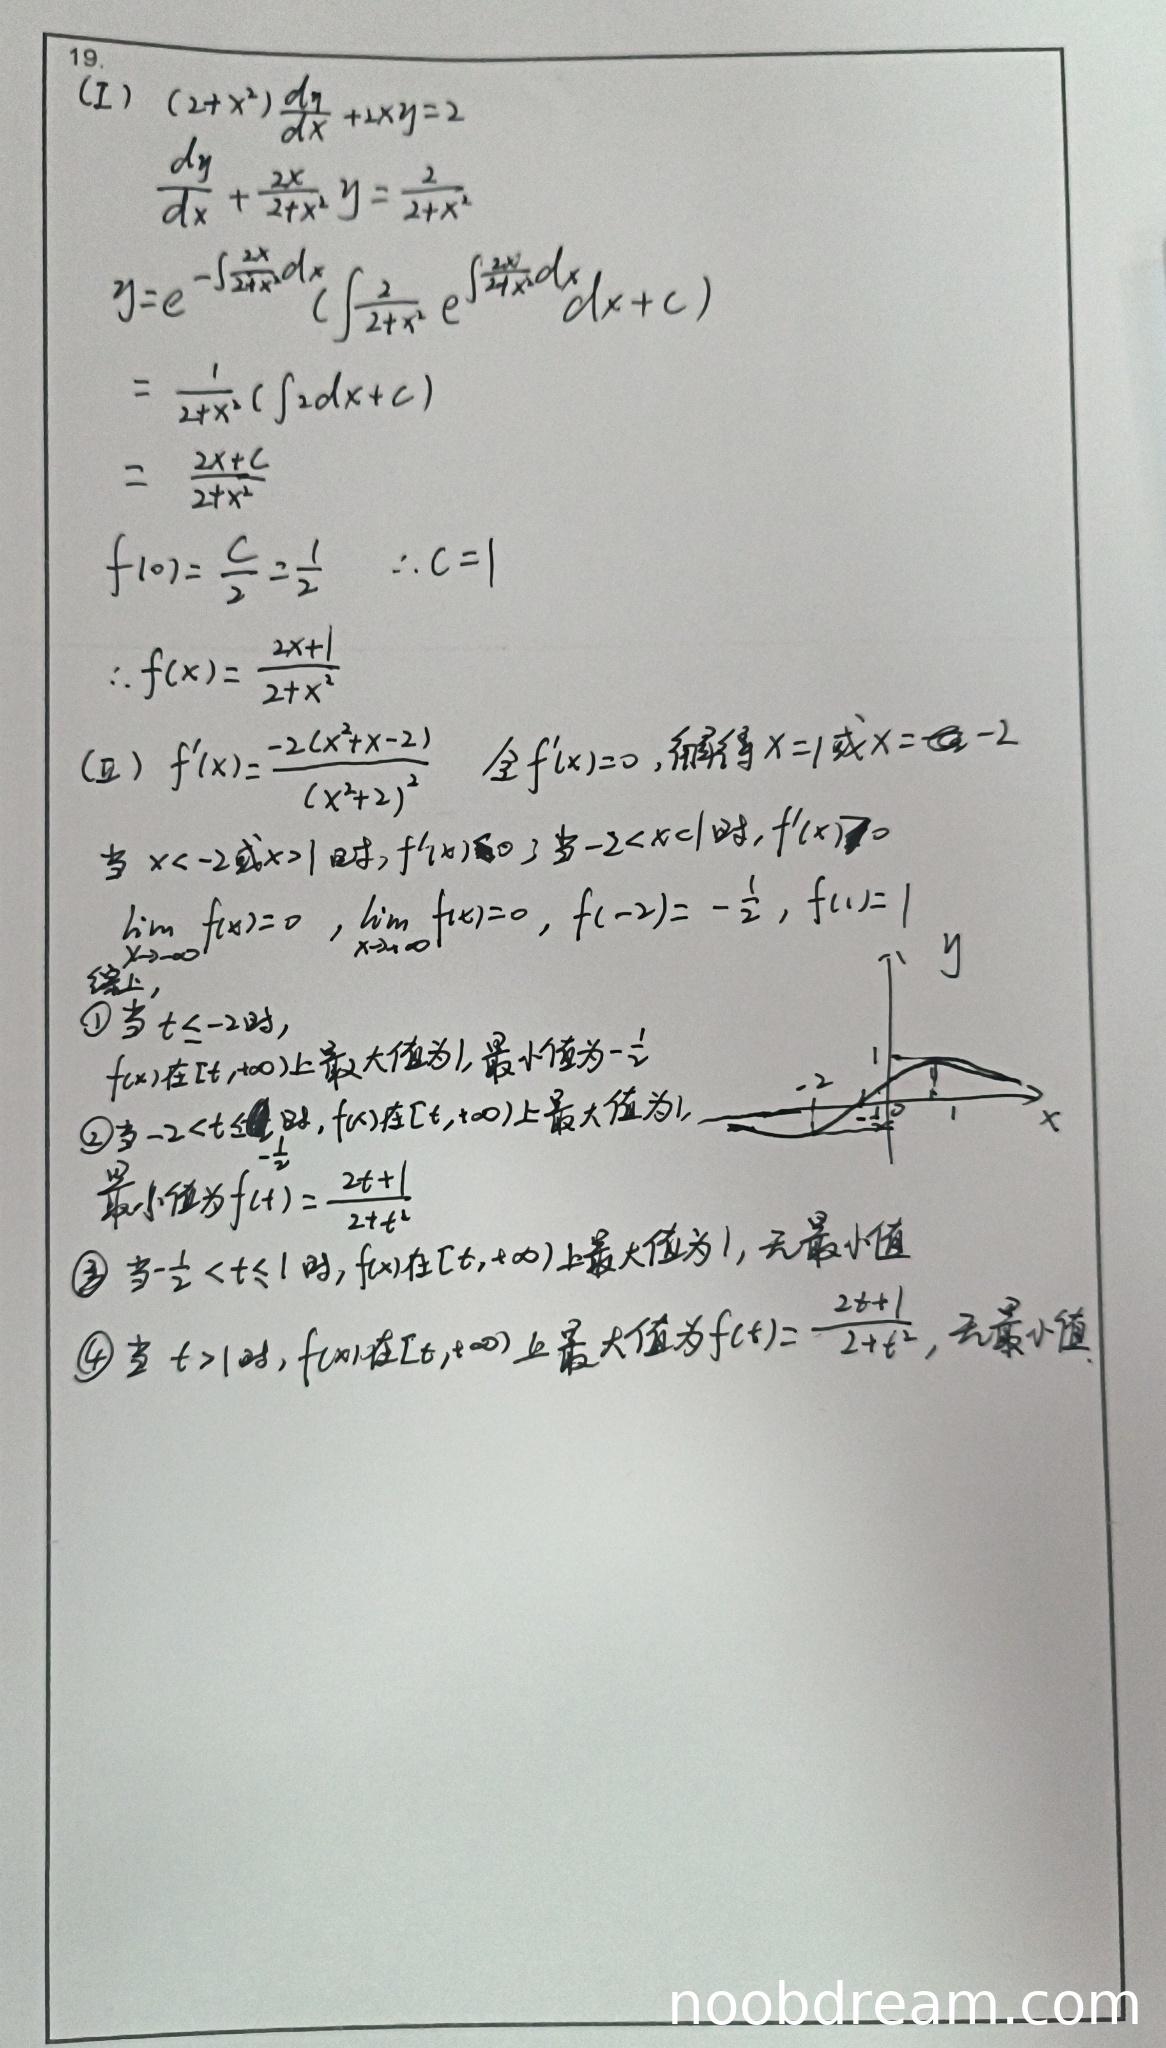 19.
(I) (2+x²)dy/dx+2xy=2
dy/dx+2x/(2+x²)y=2/(2+x²)
y=e^(-∫2x/(2+x²)dx)(∫2/(2+x²)e^(∫2x/(2+x²)dx)dx+C)
=1/(2+x²)(∫2dx+C)
=(2x+C)/(2+x²)
f(0)=C/2=1/2 ∴C=1
∴f(x)=(2x+1)/(2+x²)
(II) f'(x)=-2(x²+x-2)/(x²+2)² 令f'(x)=0,解得x=1或x=-2
当x<-2或x>1时,f'(x)<0;当-2<x<1时,f'(x)>0
lim x→-∞ f(x)=0,lim x→+∞ f(x)=0,f(-2)=-1/2,f(1)=1
综上,
①当t≤-2时,
f(x)在[t,+∞)上最大值为1,最小值为-1/2
②当-2<t≤-1/2时,f(x)在[t,+∞)上最大值为1,
最小值为f(t)=(2t+1)/(2+t²)
③当-1/2<t≤1时,f(x)在[t,+∞)上最大值为1,无最小值
④当t>1时,f(x)在[t,+∞)上最大值为f(t)=(2t+1)/(2+t²),无最小值.
y
1
-2
-1/2
0
1
x
noobdream.com